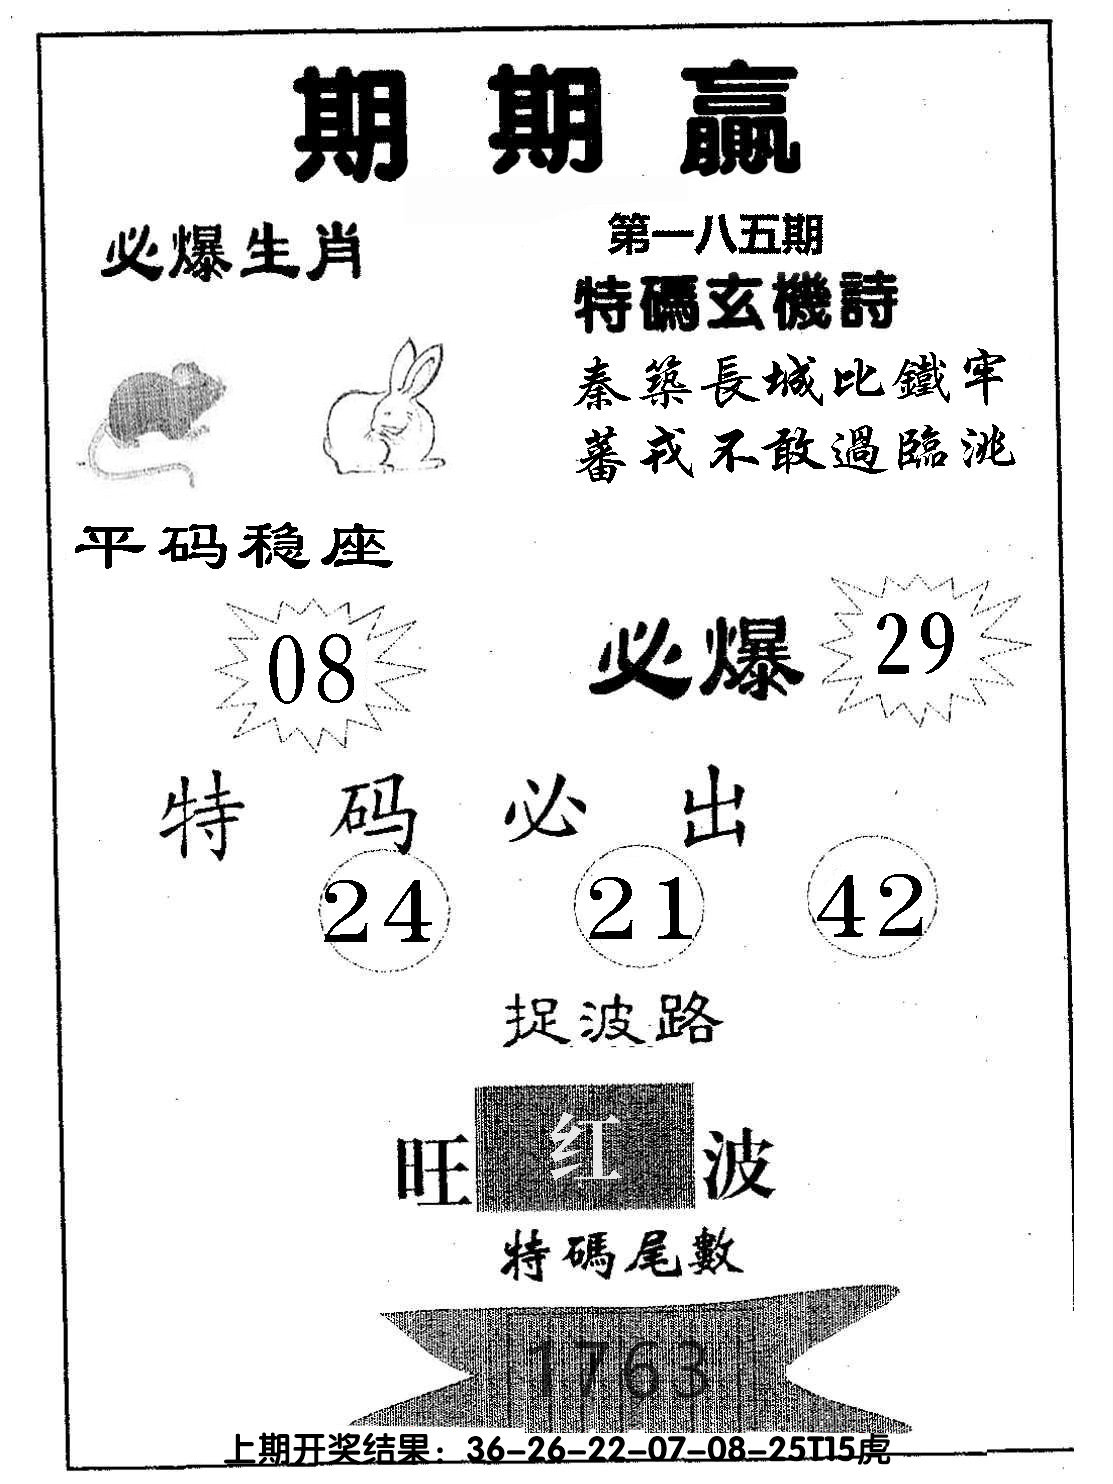 期期贏
必爆生肖
第一八五期
特碼玄機詩
秦築長城比鐵牢
蕃戎不敢過臨洮
平码稳座
08
必爆 29
特码必出
24 21 42
捉波路
旺 红 波
特碼尾數
1763
上期开奖结果：36-26-22-07-08-25T15虎